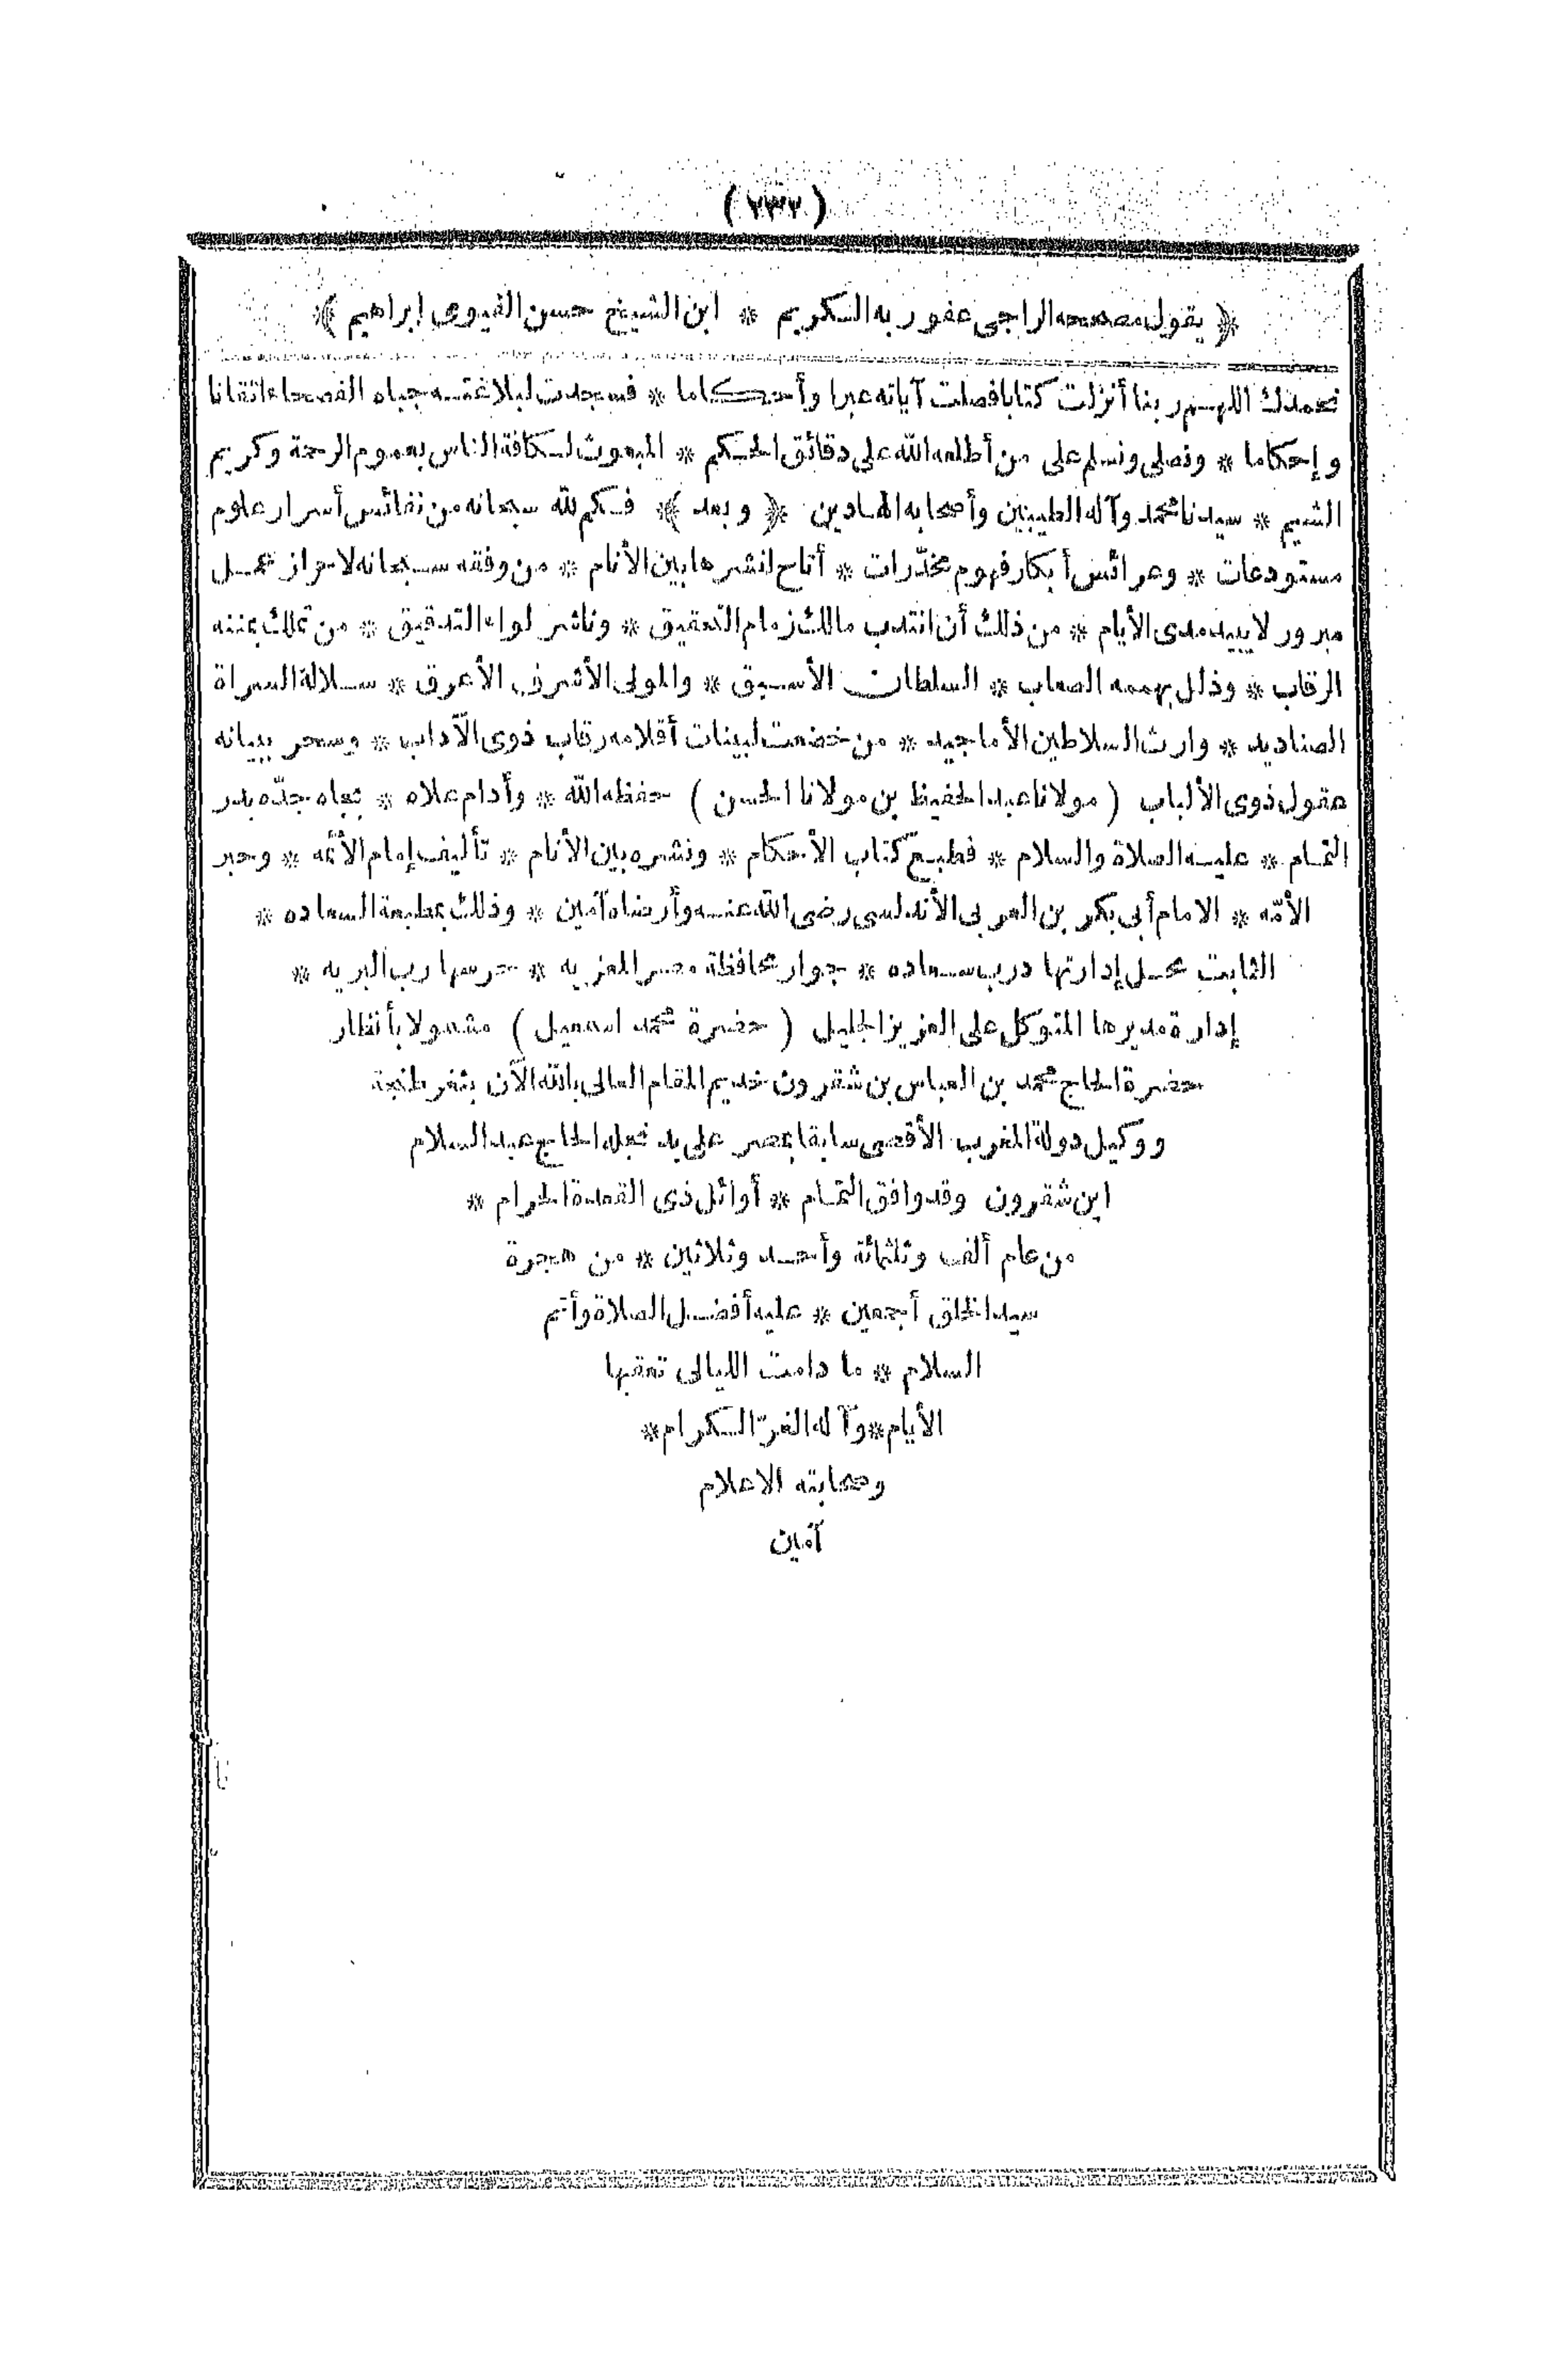 (٧٣٢)
﴿ يقول مصححه الراجى عفو ربه الكريم * ابن الشيخ حسن الفيومى إبراهيم ﴾
نحمدك اللهم ربنا أنزلت كتابا فصلت آياته عبرا وأحكاما * فسجدت لبلاغته جباه الفصحاء اتقانا
وإحكاما * ونصلى ونسلم على من أطلعه الله على دقائق الحكم * المبعوث لكافة الناس بعموم الرحمة وكريم
الشيم * سيدنا محمد وآله الطيبين وأصحابه الهادين ﴿ وبعد ﴾ فكم لله سبحانه من نفائس أسرار علوم
مستودعات * وعرائس أبكار فهوم مخدّرات * أتاح لنشرها بين الأنام * من وفقه سبحانه لاحراز عمل
مبرور لا يبيد مدى الأيام * من ذلك أن انتدب مالك زمام التحقيق * وناشر لواء التدقيق * من تملك بمننه
الرقاب * وذلل بهممه الصعاب * السلطان الأسبق * والمولى الأشرف الأعرق * سلالة السراة
الصناديد * وارث السلاطين الأماجيد * من خضعت لبينات أقلامه رقاب ذوى الآداب * وسحر ببيانه
عقول ذوى الألباب ( مولانا عبد الحفيظ بن مولانا الحسن ) حفظه الله * وأدام علاه * بجاه جدّه بدر
التمام * عليه الصلاة والسلام * فطبع كتاب الأحكام * ونشره بين الأنام * تأليف إمام الأئمه * وحبر
الأمّه * الامام أبى بكر بن العربى الأندلسى رضى الله عنه وأرضاه آمين * وذلك بمطبعة السعاده *
الثابت محل إدارتها درب سعاده * جوار محافظة مصر المعزيه * حرسها رب البريه *
إدارة مديرها المتوكل على العزيز الجليل ( حضرة محمد اسمعيل ) مشمولا بأنظار
حضرة الحاج محمد بن العباس بن شقرون خديم المقام العالى بالله الآن بثغر طنجة
ووكيل دولة المغرب الأقصى سابقا بمصر على يد نجله الحاج عبد السلام
ابن شقرون وقد وافق التمام * أوائل ذى القعدة الحرام *
من عام ألف وثلثمائة وأحد وثلاثين * من هجرة
سيد الخلق أجمعين * عليه أفضل الصلاة وأتم
السلام * ما دامت الليالى تعقبها
الأيام * وآله الغرّ الكرام *
وصحابته الاعلام
آمين